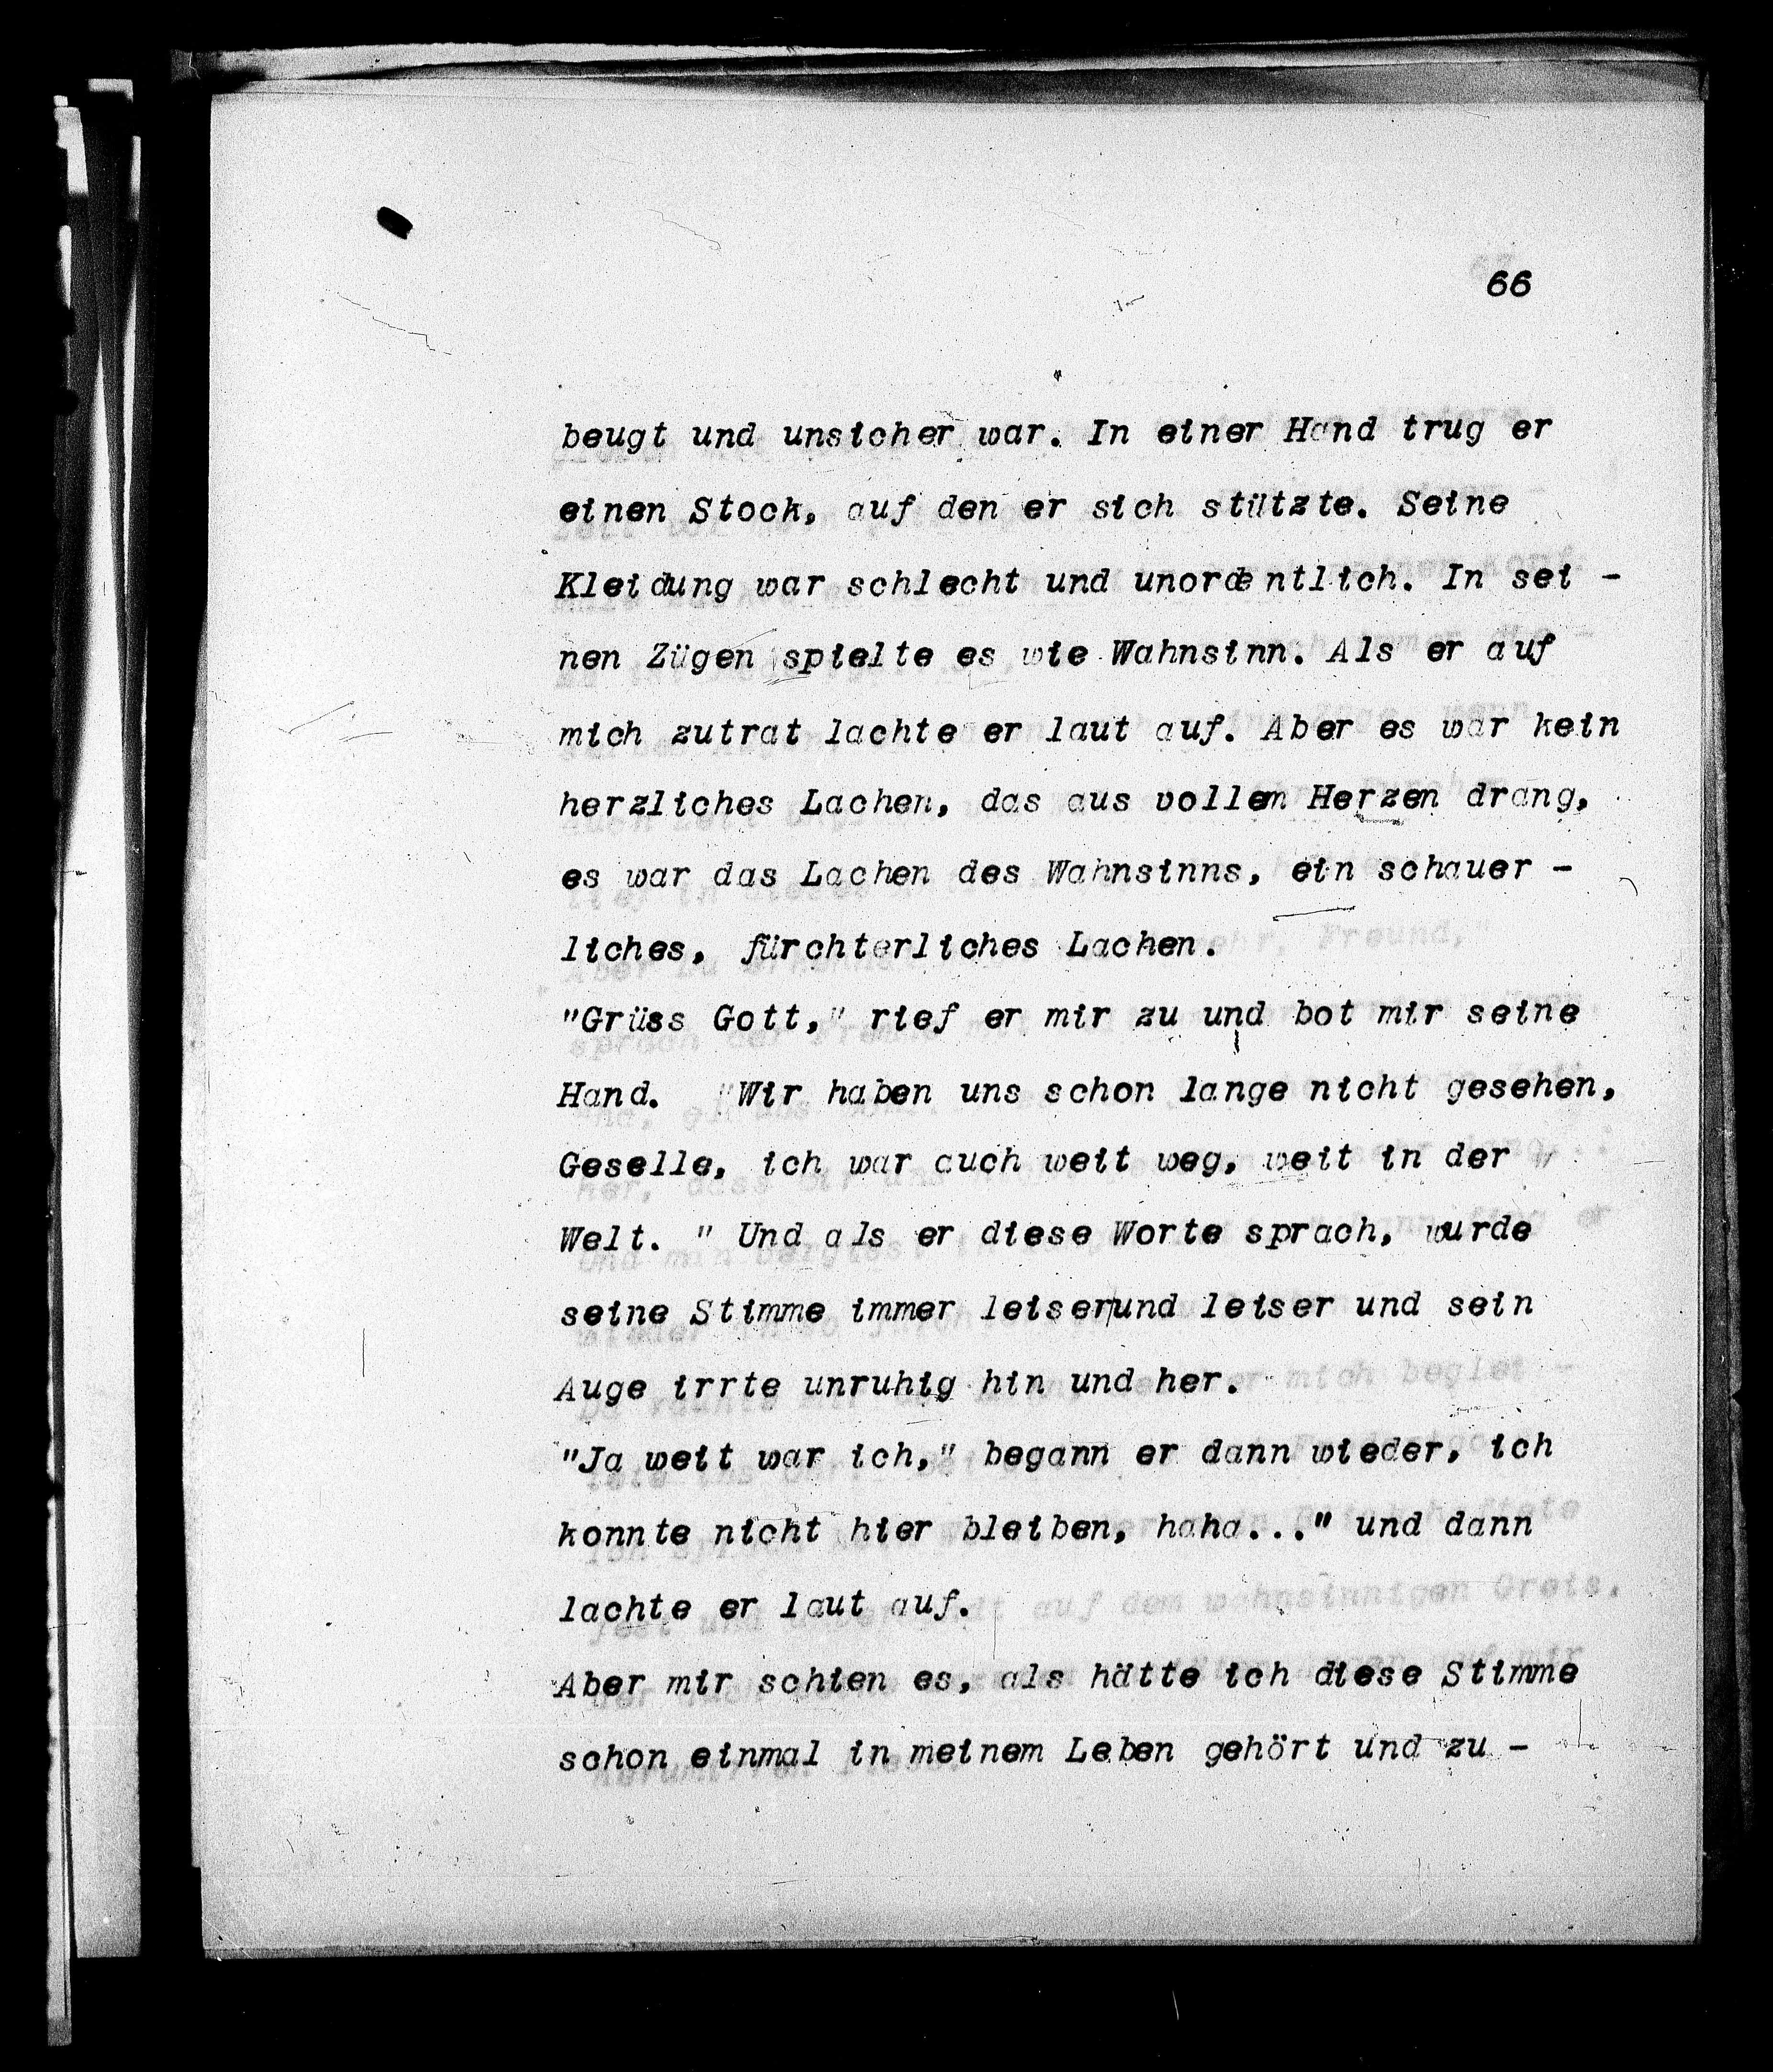 66
beugt und unsicher war. In einer Hand trug er
einen Stock, auf den er sich stützte. Seine
Kleidung war schlecht und unordentlich. In sei -
nen Zügen spielte es wie Wahnsinn. Als er auf
mich zutrat lachte er laut auf. Aber es war kein
herzliches Lachen, das aus vollem Herzen drang,
es war das Lachen des Wahnsinns, ein schauer -
liches, fürchterliches Lachen.
"Grüss Gott," rief er mir zu und bot mir seine
Hand. "Wir haben uns schon lange nicht gesehen,
Geselle, ich war auch weit weg, weit in der
Welt. " Und als er diese Worte sprach, wurde
seine Stimme immer leiser und leiser und sein
Auge irrte unruhig hin und her.
"Ja weit war ich," begann er dann wieder, ich
konnte nicht hier bleiben, haha..." und dann
lachte er laut auf.
Aber mir schien es, als hätte ich diese Stimme
schon einmal in meinem Leben gehört und zu -